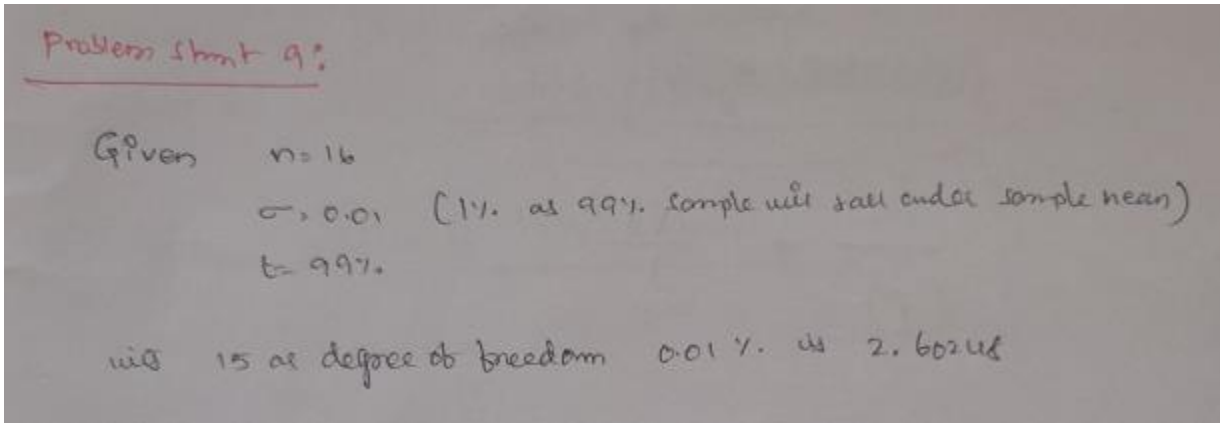 Problem stmnt 9:
Given n=16
σ = 0.01 (1% as 99% sample will fall under sample mean)
t= 99%.
with 15 as degree of freedom 0.01 %. is 2.60248